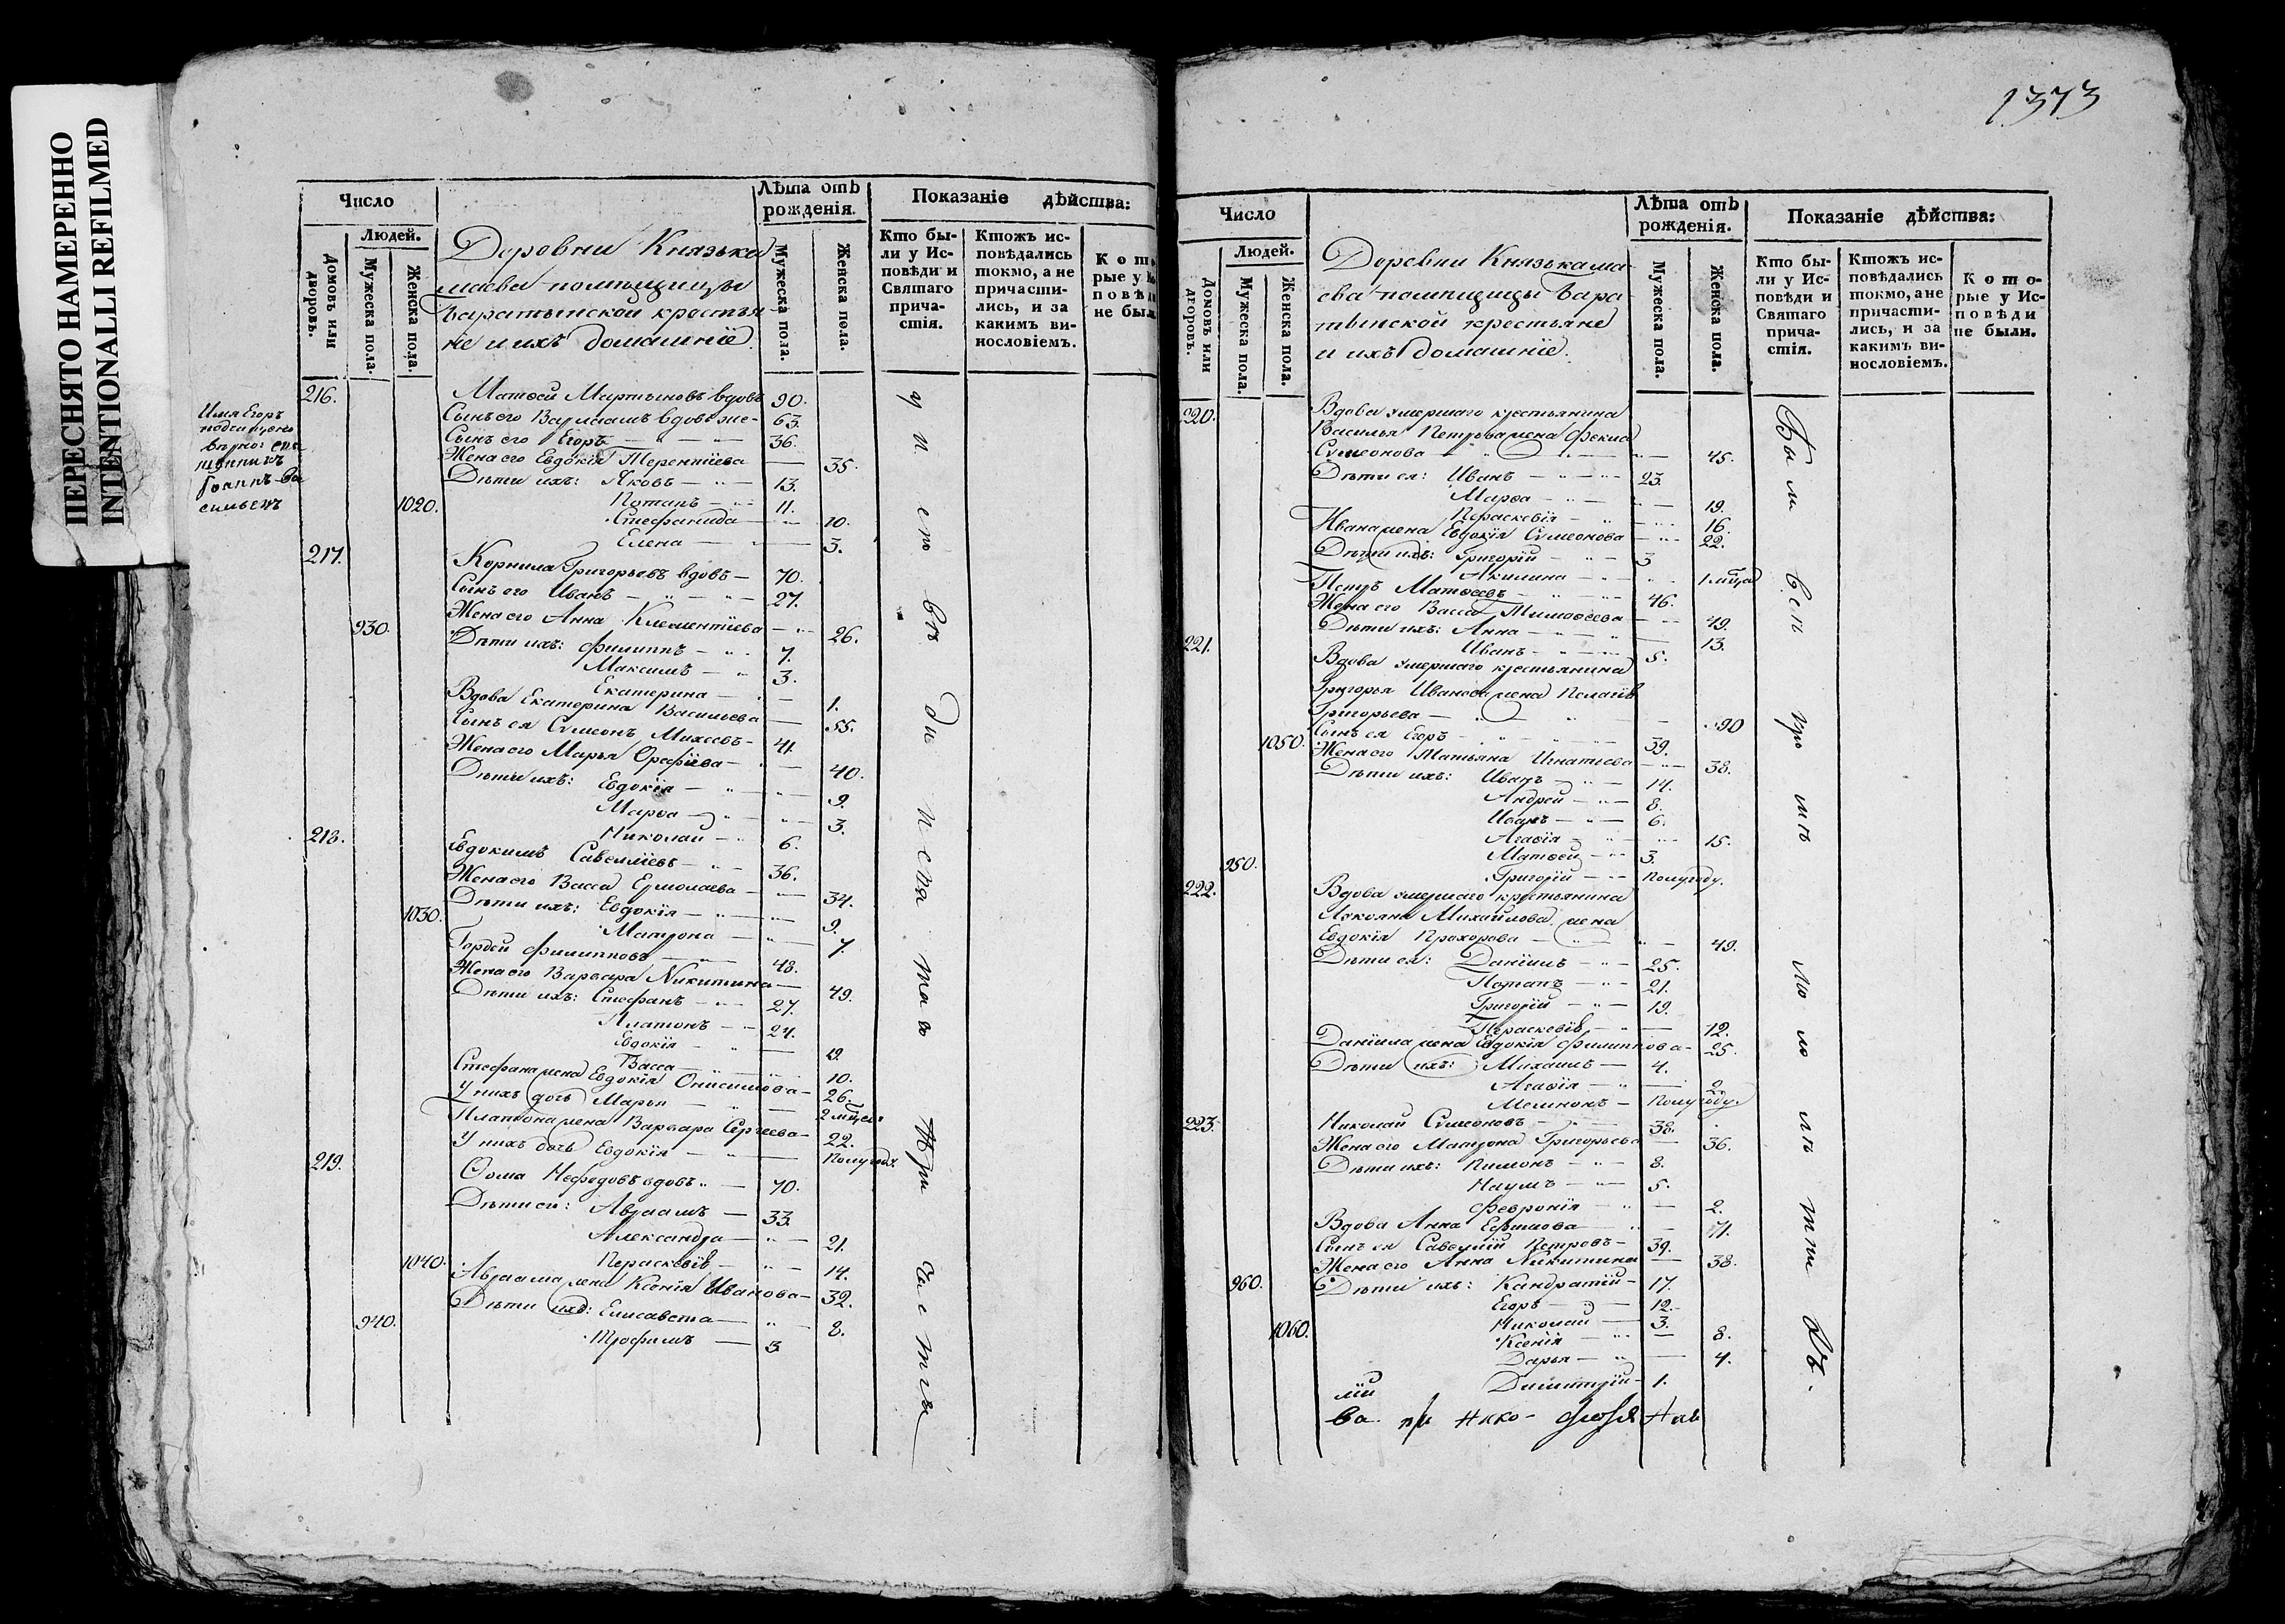 ПЕРЕСНЯТО НАМЕРЕННО
INTENTIONALLI REFILMED
Число
Людей.
Домовъ или дворовъ.
Мужеска пола.
Женска пола.
Деревни Князька
маева помѣщицы
Баратынской крестья
не и ихъ домашнiе
Лѣта отъ рожденiя.
Мужеска пола.
Женска пола.
Показанiе дѣйства:
Кто бы-
ли у Ис-
повѣди и
Святаго
прича-
стiя.
Ктожъ ис-
повѣдались
токмо, а не
причасти-
лись, и за
какимъ ви-
нословiемъ.
Кото
рые у
повѣ
не был
Имя Егоръ
216. Матѳей Мартыновъ вдовъ 90.
Сынъ его Варлаамъ вдовъ же 63.
Сынъ его Егоръ 36.
Жена его Евдокiя Терентiева 35.
Дѣти ихъ: Яковъ 13.
1020. Потапъ 11.
Стефанида 10.
Елена 3.
217. Корнила Григорьевъ вдовъ 70.
Сынъ его Иванъ 27.
930. Жена его Анна Климентiева 26.
Дѣти ихъ: Филиппъ 7.
Максимъ 3.
Екатерина 1.
Вдова Екатерина Васильева 55.
Сынъ ея Сѵмеонъ Михеевъ 41.
Жена его Марья Орефiева 40.
Дѣти ихъ: Евдокiя 9.
Марѳа 3.
218. Николай 6.
Евдокимъ Савелiевъ 36.
Жена его Васса Ермолаева 34.
1030. Дѣти ихъ: Евдокiя 9.
Матрона 7.
Гордей Филипповъ 48.
Жена его Варвара Никитина 49.
Дѣти ихъ: Стефанъ 27.
Платонъ 24.
Евдокiя 19.
Васса 10.
Стефана жена Евдокiя Онисимова 26.
У нихъ дочь Марья 2 мѣсяц.
Платона жена Варвара Сергеева 22.
У нихъ дочь Евдокiя Полугода.
219. Ѳома Нефедовъ вдовъ 70.
Дѣти его: Авраамъ 33.
Александра 21.
1040. Параскевiя 14.
Авраама жена Ксенiя Иванова 32.
Дѣти ихъ: Елисавета 8.
940. Трофимъ 3.
1373
Число
Людей.
Домовъ или дворовъ.
Мужеска пола.
Женска пола.
Деревни Князькама
ева помѣщицы Бара
тынской крестьяне
и ихъ домашнiе.
Лѣта отъ рожденiя.
Мужеска пола.
Женска пола.
Показанiе дѣйства:
Кто бы-
ли у Ис-
повѣди и
Святаго
прича-
стiя.
Ктожъ ис-
повѣдались
токмо, а не
причасти-
лись, и за
какимъ ви-
нословiемъ.
Кото-
рые у Ис-
повѣди
не были.
220. Вдова умершаго крестьянина
Василья Петрова жена Фекла
Сѵмеонова 45.
Дѣти ея: Иванъ 23.
Марѳа 19.
Параскевiя 16.
Ивана жена Евдокiя Сѵмеонова 22.
Дѣти ихъ: Григорiй 3
Акилина 1 мѣсяц
Петръ Матѳеевъ 46.
Жена его Васса Тимоѳеева 49.
Дѣти ихъ: Анна 13.
221. Иванъ 5.
Вдова умершаго крестьянина
Григорья Иванова жена Пелагiя
Григорьева 90
Сынъ ея Егоръ 39.
1050. Жена его Татьяна Игнатiева 38.
Дѣти ихъ: Иванъ 14.
Андрей 8.
Иванъ 6.
Агаѳiя 15.
950. Матѳей 3.
Григорiй Полугоду.
222. Вдова умершаго крестьянина
Михайлова жена
Евдокiя Прохорова 49.
Дѣти ея: Данiилъ 25.
Потапъ 21.
Григорiй 19.
Параскевiя 12.
Данiила жена Евдокiя Филиппова 25.
Дѣти ихъ: Михаилъ 4.
Агаѳiя 2.
Полугоду.
223. Николай Сѵмеоновъ 38.
Жена его Матрона Григорьева 36.
Дѣти ихъ: Пимонъ 8.
Наумъ 5.
Февронiя 2.
Вдова Анна Ефимова 71.
Сынъ ея Савелiй Петровъ 39.
Жена его Анна Никитина 38.
960. Дѣти ихъ: Кандратiй 17.
Егоръ 12.
Николай 3.
1060. Ксенiя 8.
Дарья 4.
Димитрiй 1.